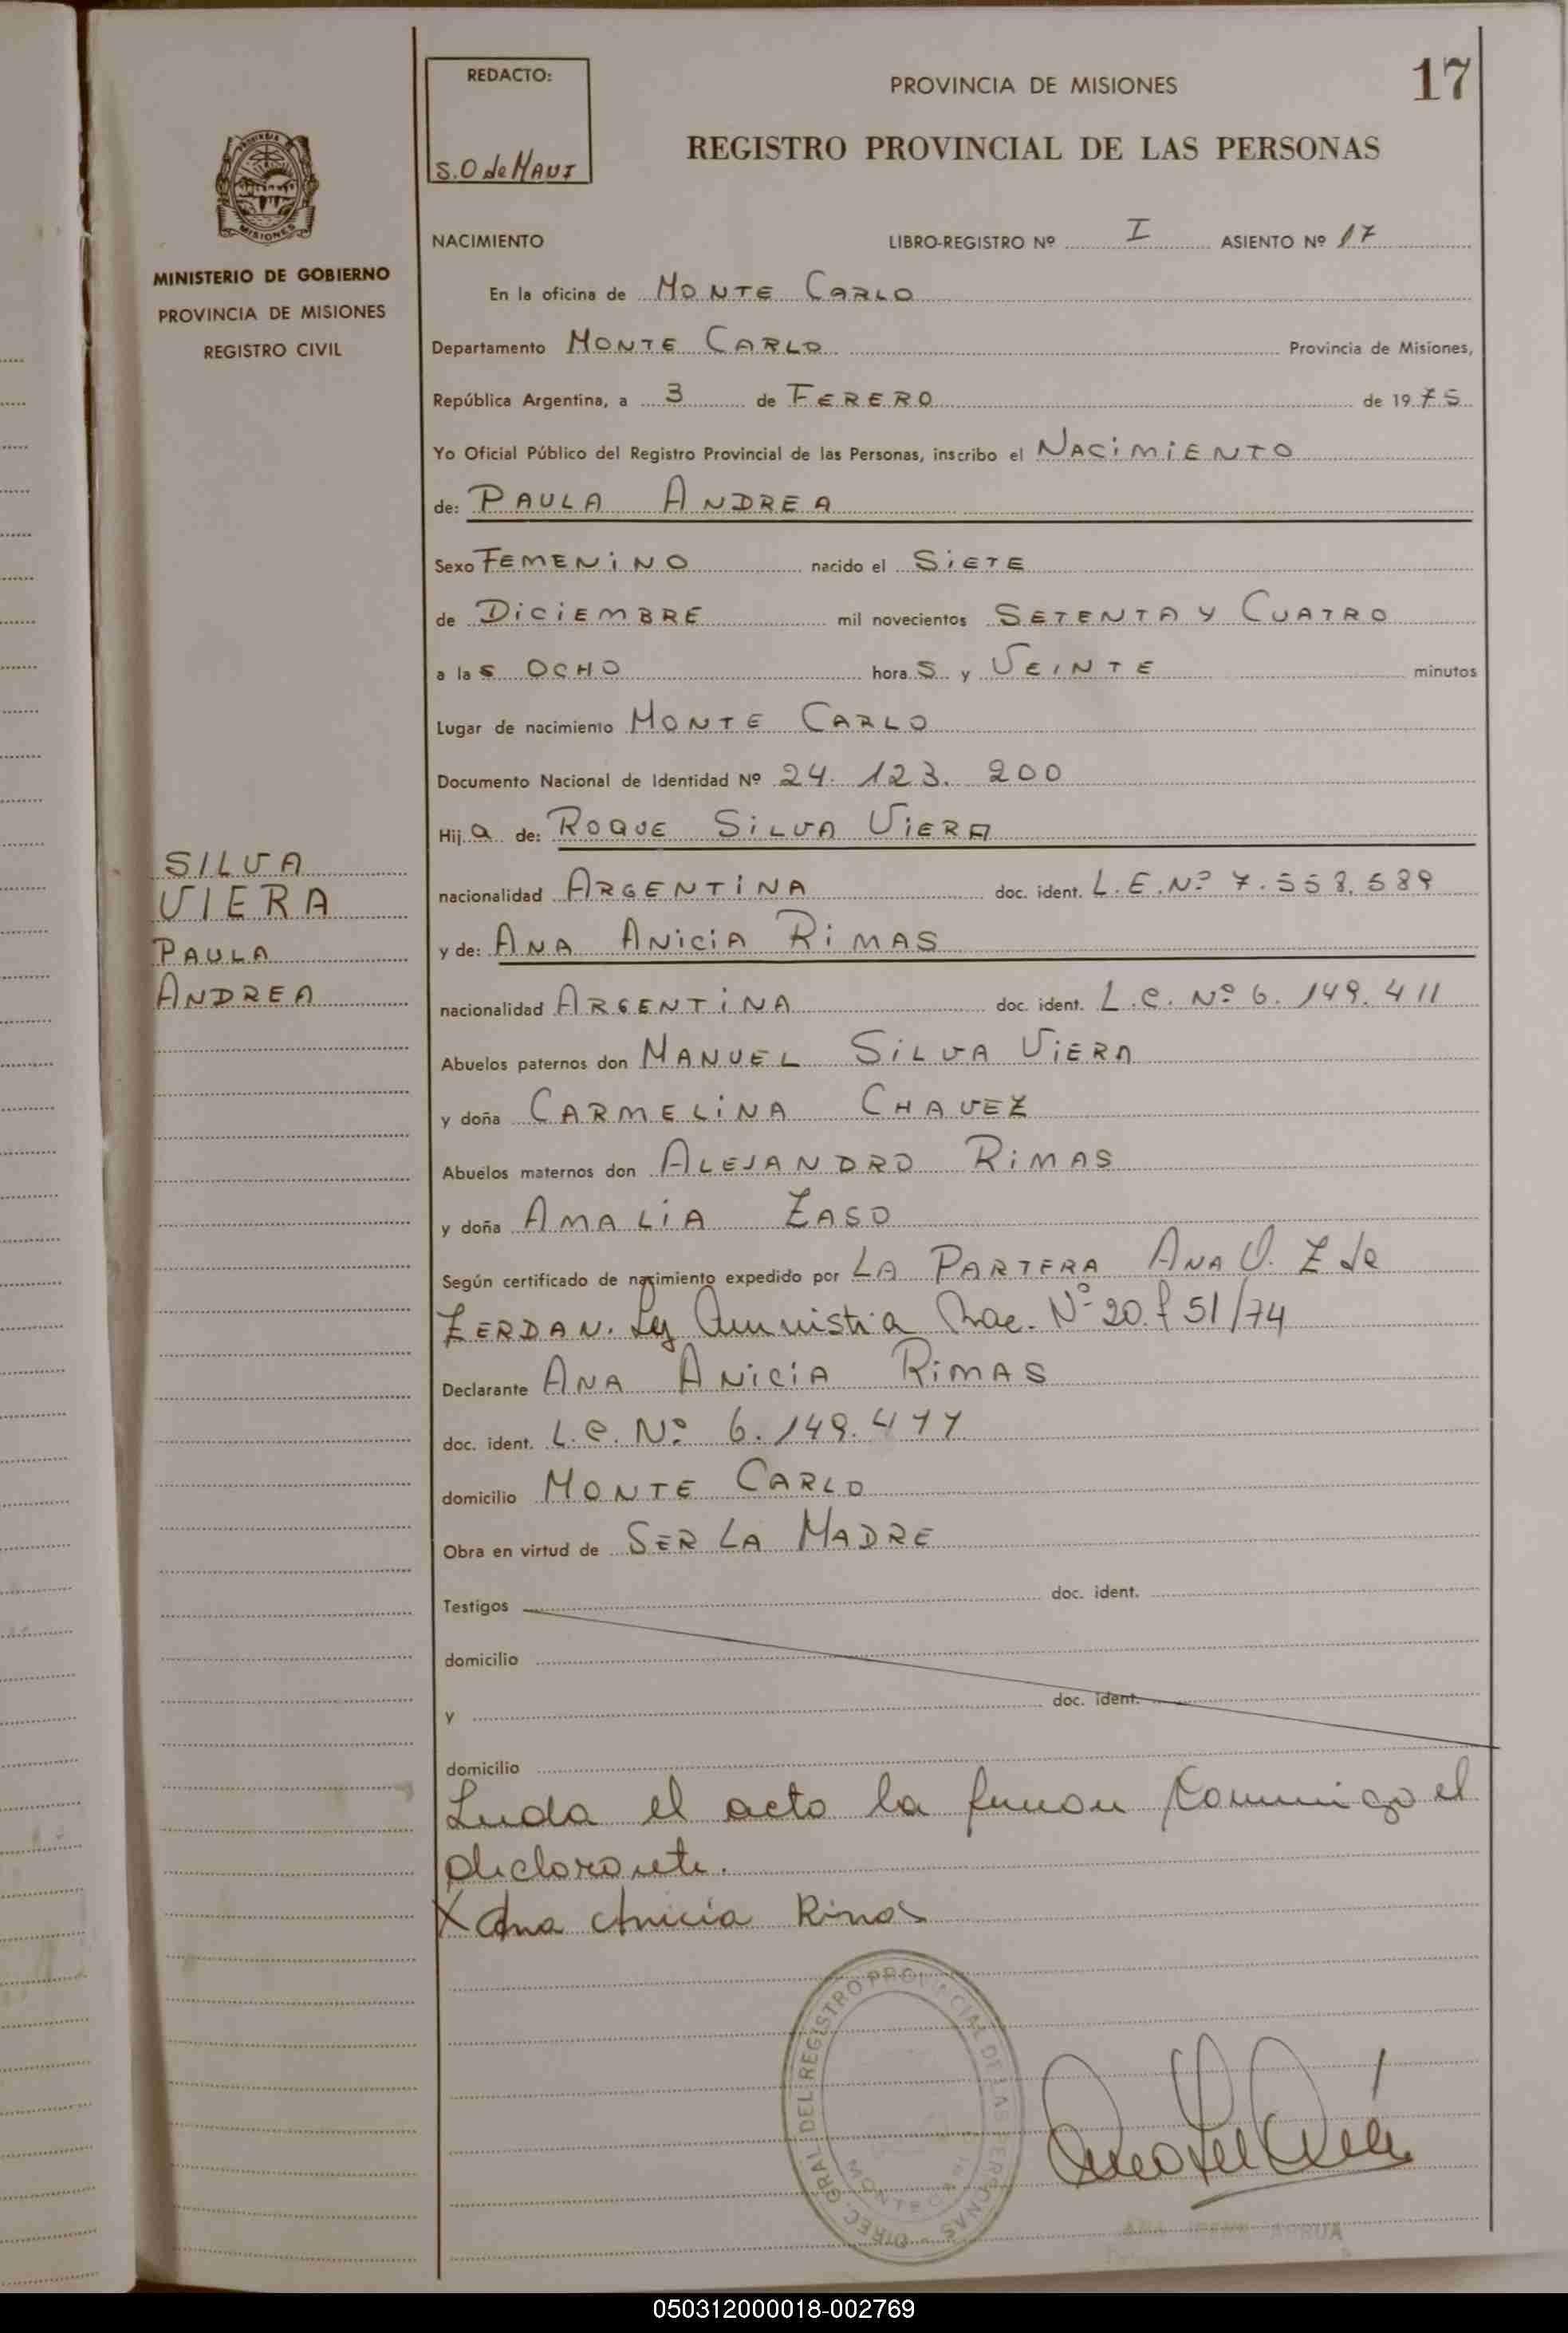 17
REDACTO:
S.O de HAUS
PROVINCIA DE MISIONES
REGISTRO PROVINCIAL DE LAS PERSONAS
MISIONES
MINISTERIO DE GOBIERNO
PROVINCIA DE MISIONES
REGISTRO CIVIL
NACIMIENTO LIBRO-REGISTRO Nº I ASIENTO Nº 17
En la oficina de MONTE CARLO
Departamento MONTE CARLO Provincia de Misiones,
República Argentina, a 3 de FERERO de 1975
Yo Oficial Público del Registro Provincial de las Personas, inscribo el NACIMIENTO
de: PAULA ANDREA
Sexo FEMENINO nacido el SIETE
de DICIEMBRE mil novecientos SETENTA Y CUATRO
a las OCHO horas y VEINTE minutos
Lugar de nacimiento MONTE CARLO
Documento Nacional de Identidad Nº 24. 123. 200
Hija de: ROQUE SILVA VIERA
SILVA
VIERA
PAULA
ANDREA
nacionalidad ARGENTINA doc. ident. L.E. Nº 7.558.589
y de: ANA ANICIA RIMAS
nacionalidad ARGENTINA doc. ident. L.C. Nº 6. 149. 411
Abuelos paternos don MANUEL SILVA VIERA
y doña CARMELINA CHAVEZ
Abuelos maternos don ALEJANDRO RIMAS
y doña AMALIA ZASO
Según certificado de nacimiento expedido por LA PARTERA ANA V. Z de
ZERDAN. Ley Amnistia Nac. Nº 20. 51/74
Declarante ANA ANICIA RIMAS
doc. ident. L.C. Nº 6. 149. 411
domicilio MONTE CARLO
Obra en virtud de SER LA MADRE
Testigos doc. ident.
domicilio
y doc. ident.
domicilio
Leida el acta la firman conmigo el
declarante.
X Ana Anicia Rimas
DIREC. GRAL DEL REGISTRO PROVINCIAL DE LAS PERSONAS
050312000018-002769